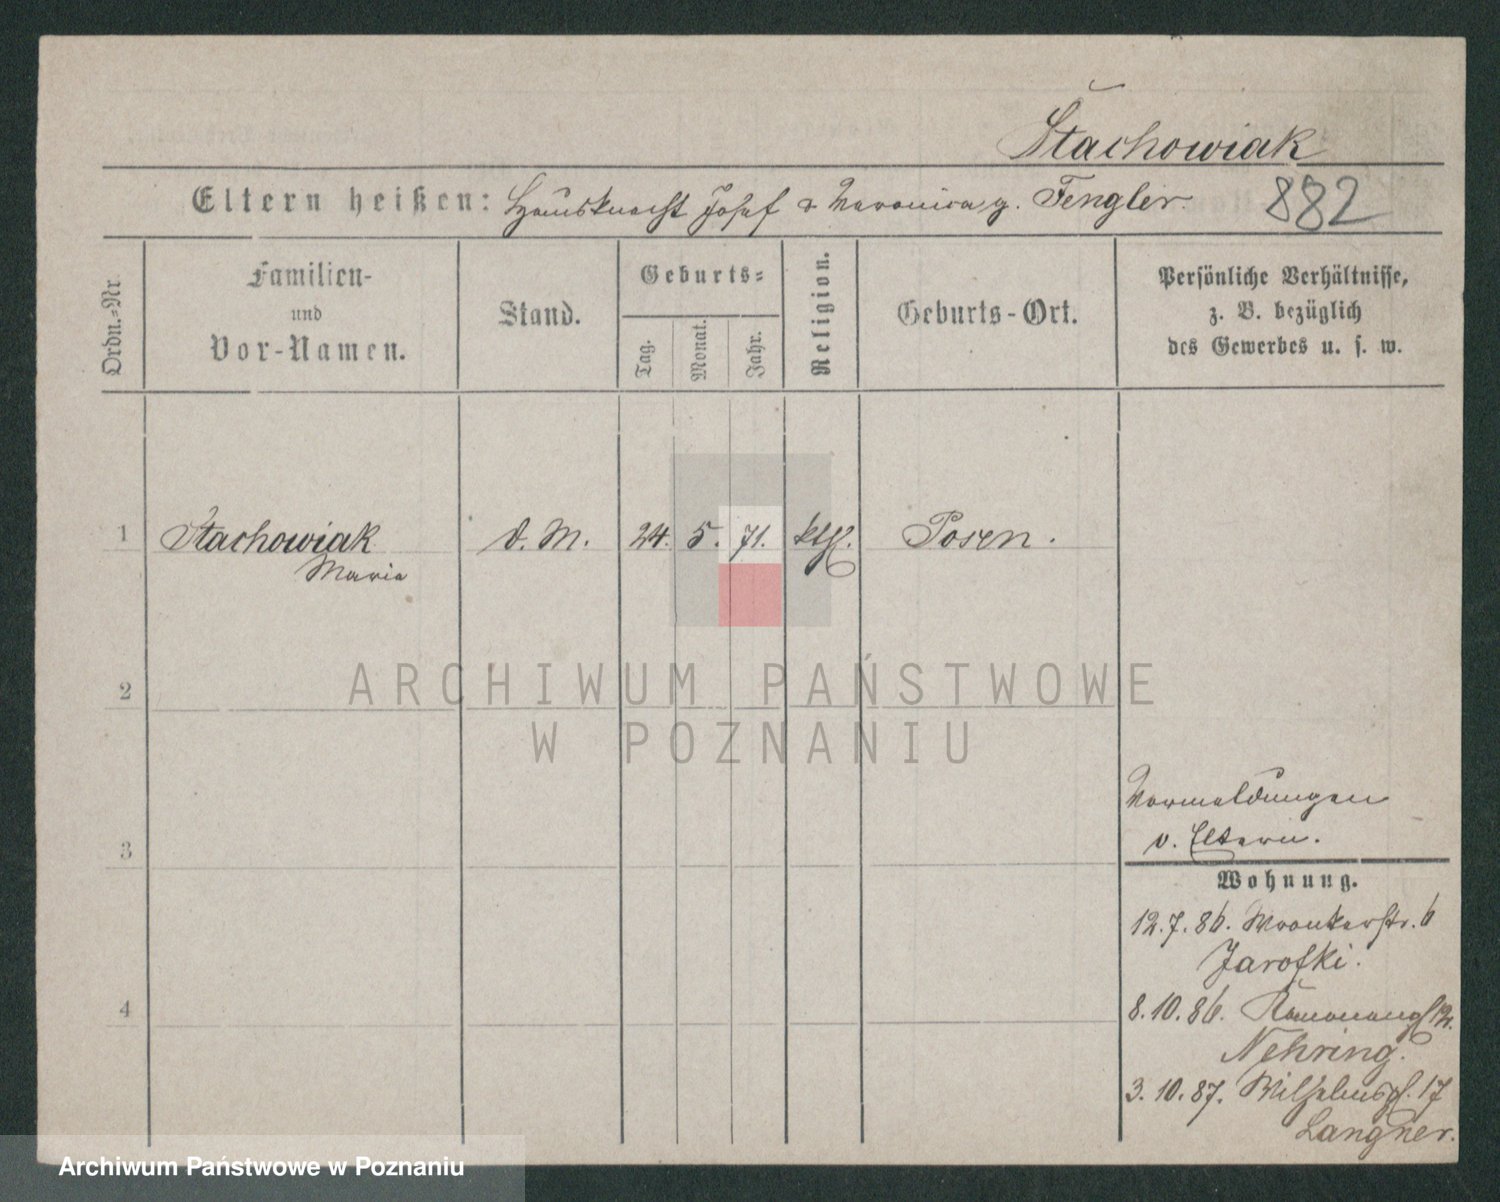 Stachowiak
Eltern heißen: Hausknecht Josef & Veronica g. Fengler. 882
Ordn.=Nr.
Familien-
und
Vor-Namen.
Stand.
Geburts=
Tag.
Monat.
Jahr.
Religion.
Geburts-Ort.
Persönliche Verhältnisse,
z. B. bezüglich
des Gewerbes u. s. w.
1 Stachowiak D. M. 24. 5. 71. kth. Posen.
Maria
2
ARCHIWUM PAŃSTWOWE
W POZNANIU
3
4
Vormeldungen
v. Eltern.
Wohnung.
12.7.86. Wronkerstr. 6
Jarofki.
8.10.86. 12.
Nehring.
3.10.87. Wilhelmspl. 17
Langner.
Archiwum Państwowe w Poznaniu